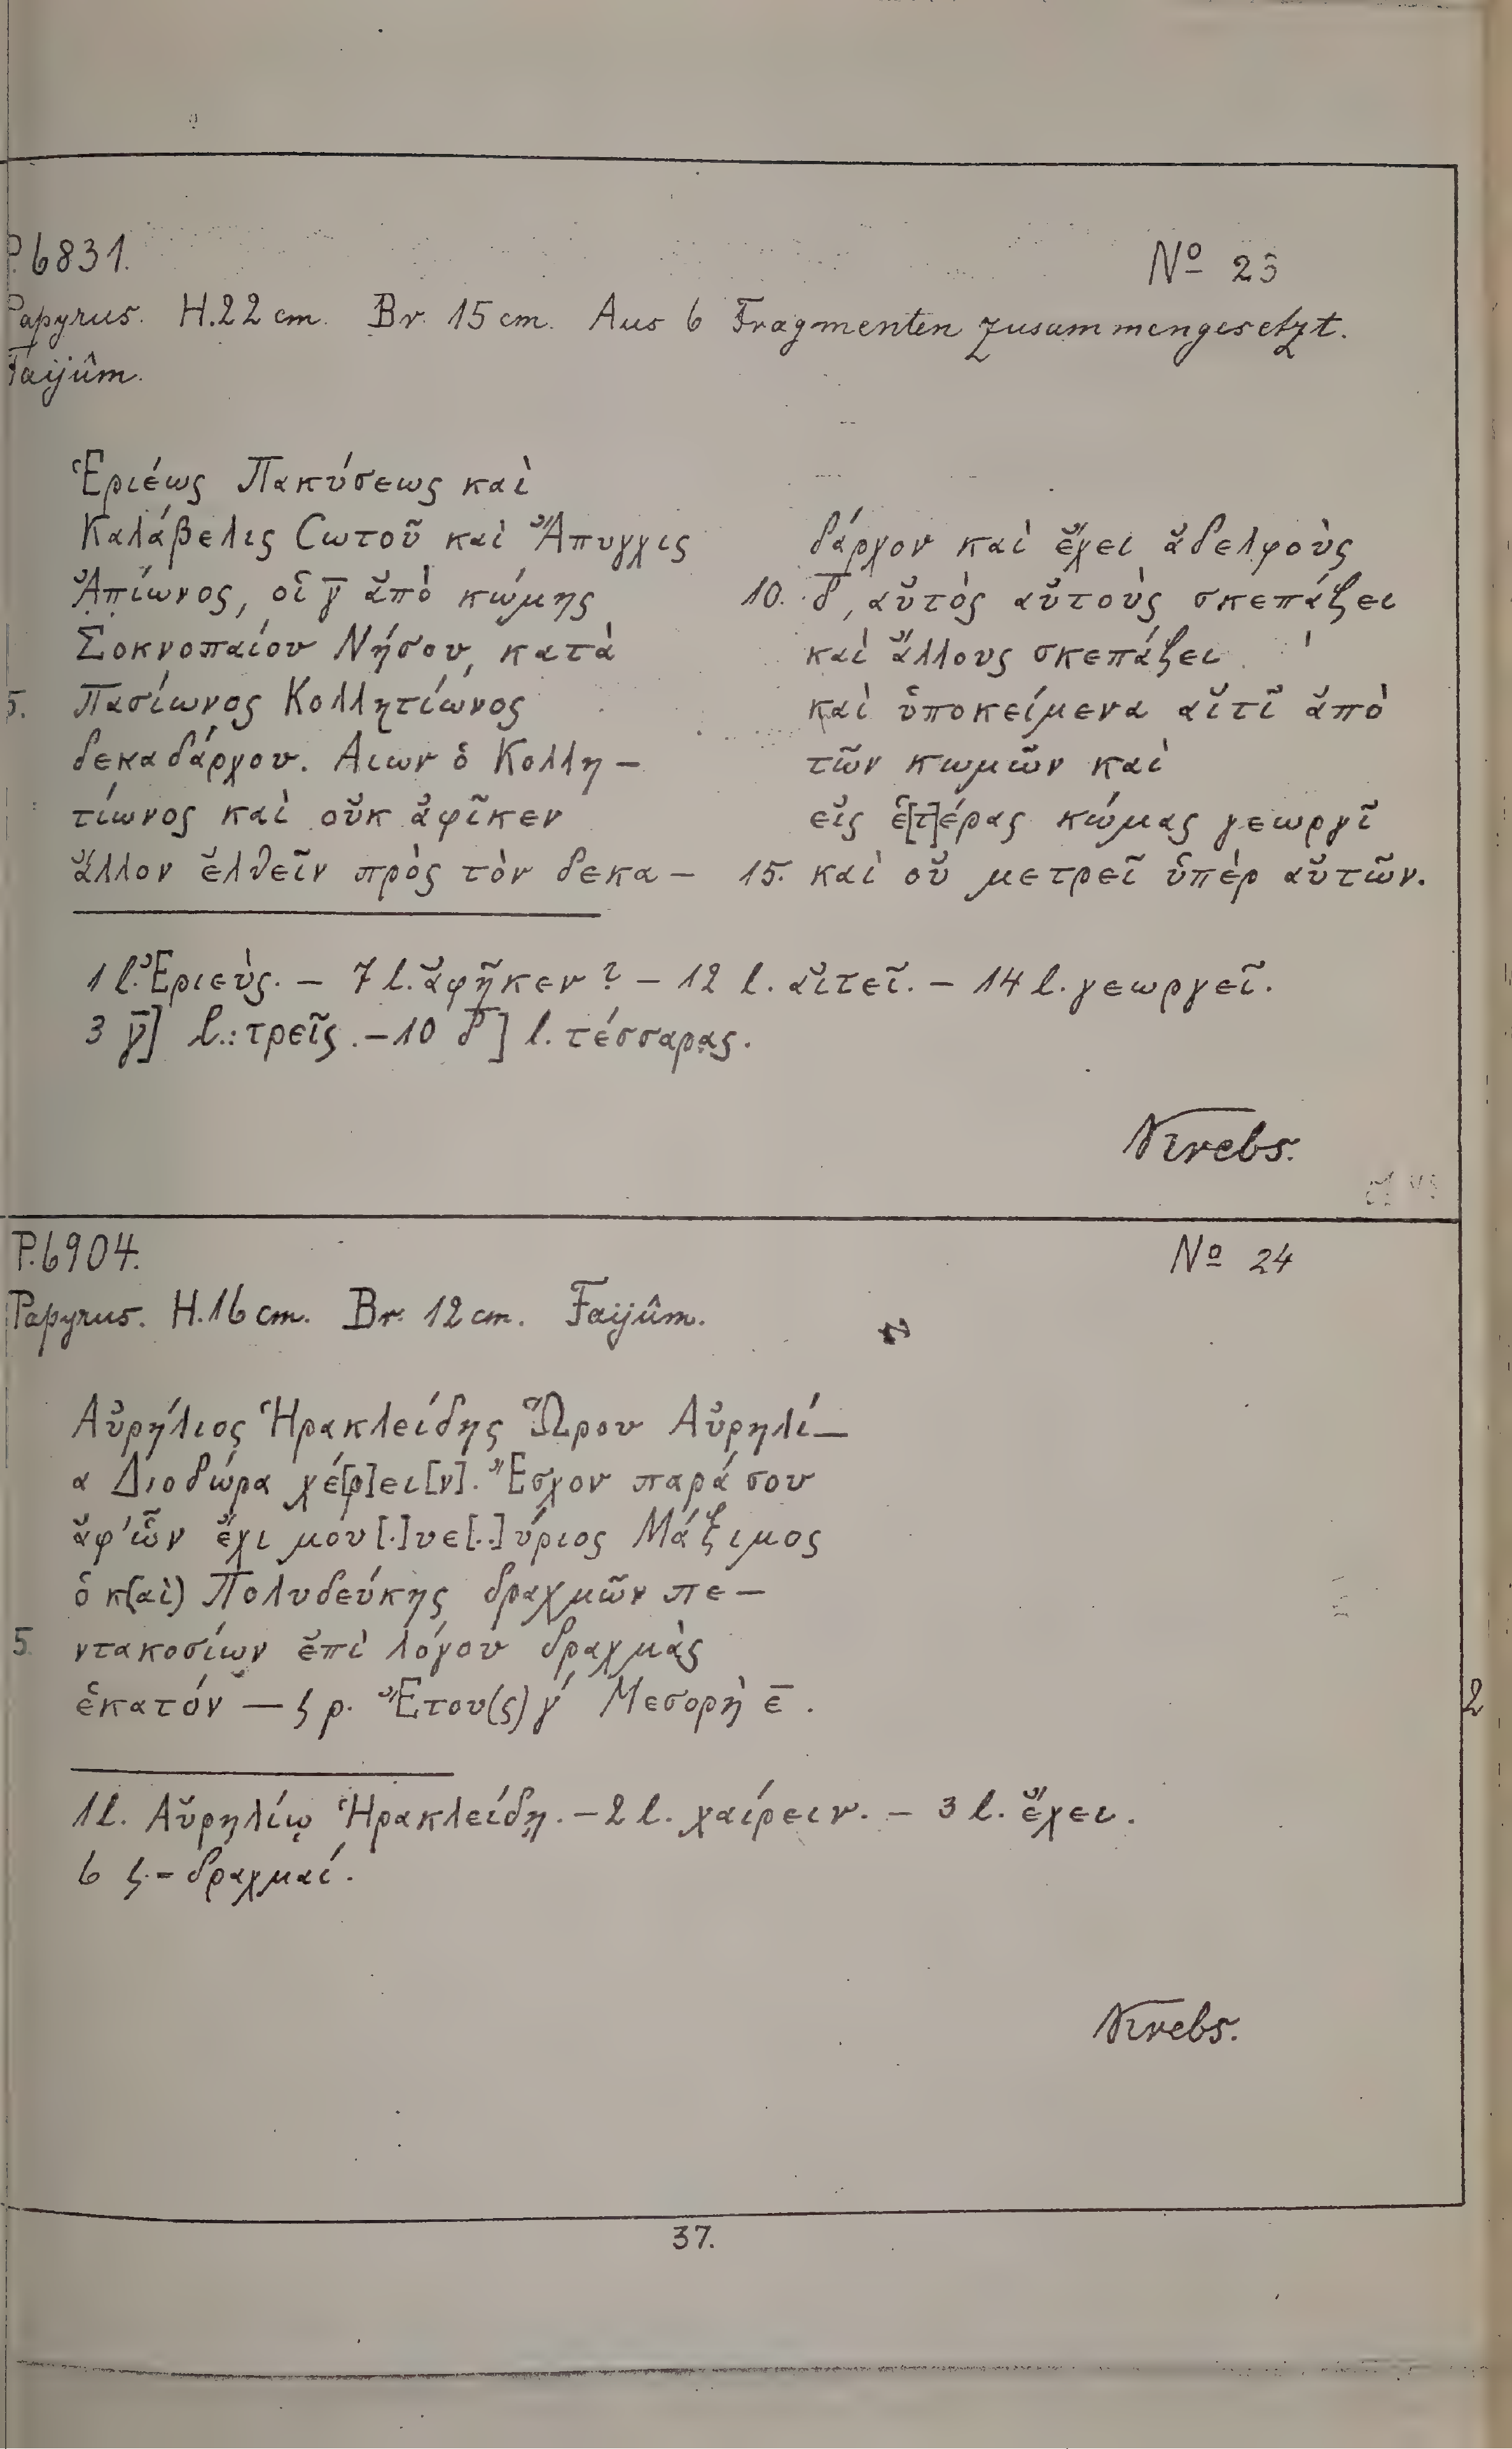 P.6831. Nº 23
Papyrus. H.22 cm. Br. 15 cm. Aus 6 Fragmenten zusammengesetzt.
Faijûm.
Ἑριέως Πακύσεως καὶ
Καλάβελις Σωτοῦ καὶ Ἄπυγχις
Ἀπίωνος, οἱ γ̅ ἀπὸ κώμης
Σοκνοπαίου Νήσου, κατὰ
5. Πασίωνος Κολλητίωνος
δεκαδάρχου. Αιων ὁ Κολλη–
τίωνος καὶ οὐκ ἀφῖκεν
ἄλλον ἐλθεῖν πρὸς τὸν δεκα–
δάρχον καὶ ἔχει ἀδελφοὺς
10. δ̅, αὐτὸς αὐτοὺς σκεπάζει
καὶ ἄλλους σκεπάζει
καὶ ὑποκείμενα αἰτῖ ἀπὸ
τῶν κωμῶν καὶ
εἰς ἑ[τ]έρας κώμας γεωργῖ
15. καὶ οὐ μετρεῖ ὑπὲρ αὐτῶν.
1 l. Ἐριεὺς. – 7 l. ἀφῆκεν? – 12 l. αἰτεῖ. – 14 l. γεωργεῖ.
3 γ̅] l.: τρεῖς. – 10 δ̅] l. τέσσαρας.
Krebs.
P.6904. Nº 24
Papyrus. H.16 cm. Br. 12 cm. Faijûm.
Αὐρήλιος Ἡρακλείδης Ὥρου Αὐρηλί–
α Διοδώρα χέ[ρ]ει[ν]. Ἔσχον παρά σου
ἀφ' ὧν ἔχι μου [.]υε[..]ύριος Μάξιμος
ὁ κ(αὶ) Πολυδεύκης δραχμῶν πε–
5. ντακοσίων ἐπὶ λόγου δραχμὰς
ἑκατόν — ϛ ρ. Ἔτου(ς) γ´ Μεσορὴ ε̅.
1 l. Αὐρηλίῳ Ἡρακλείδῃ. – 2 l. χαίρειν. – 3 l. ἔχει.
6 ϛ = δραχμαί.
Krebs.
37.